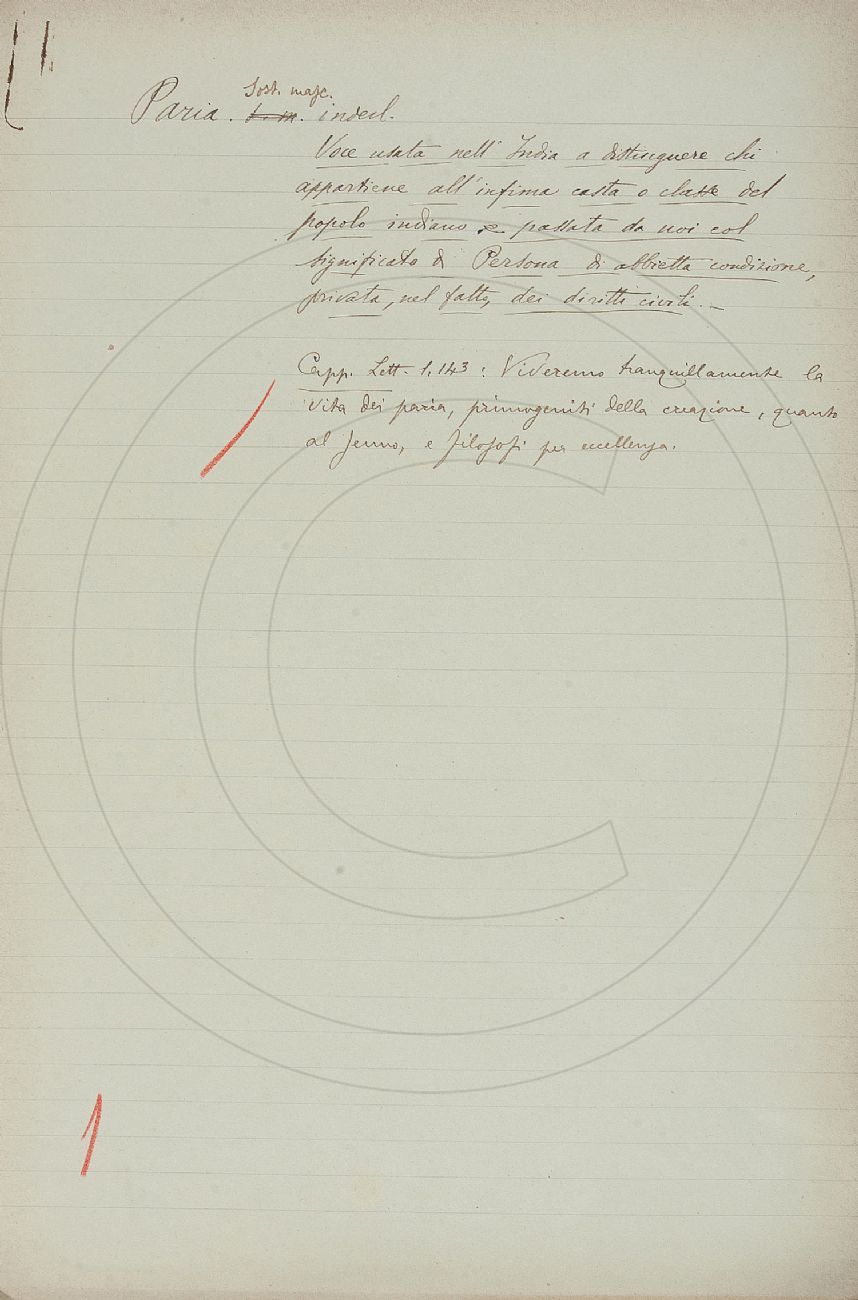 Sost. masc.
Paria. s. m. indecl.
Voce usata nell'India a distinguere chi
appartiene all'infima casta o classe del
popolo indiano e passata da noi col
significato di Persona di abbietta condizione,
privata, nel fatto, dei diritti civili. —
Capp. Lett. 1. 143: Viveremo tranquillamente la
vita dei paria, primogeniti della creazione, quanto
al senno, e filosofi per eccellenza.
1